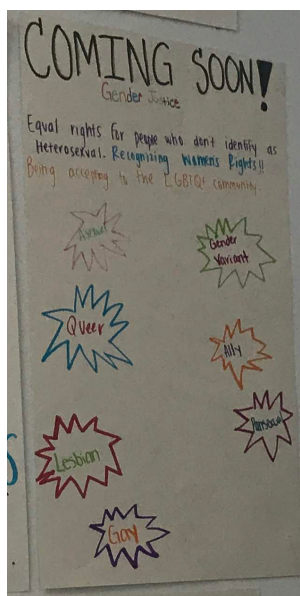 COMING SOON!
Gender Justice
Equal rights for people who don't identify as
Heterosexual. Recognizing Women's Rights!!
Being accepting to the LGBTQ+ community.
Asexual
Gender
Variant
Queer
Ally
Pansexual
Lesbian
Gay
S